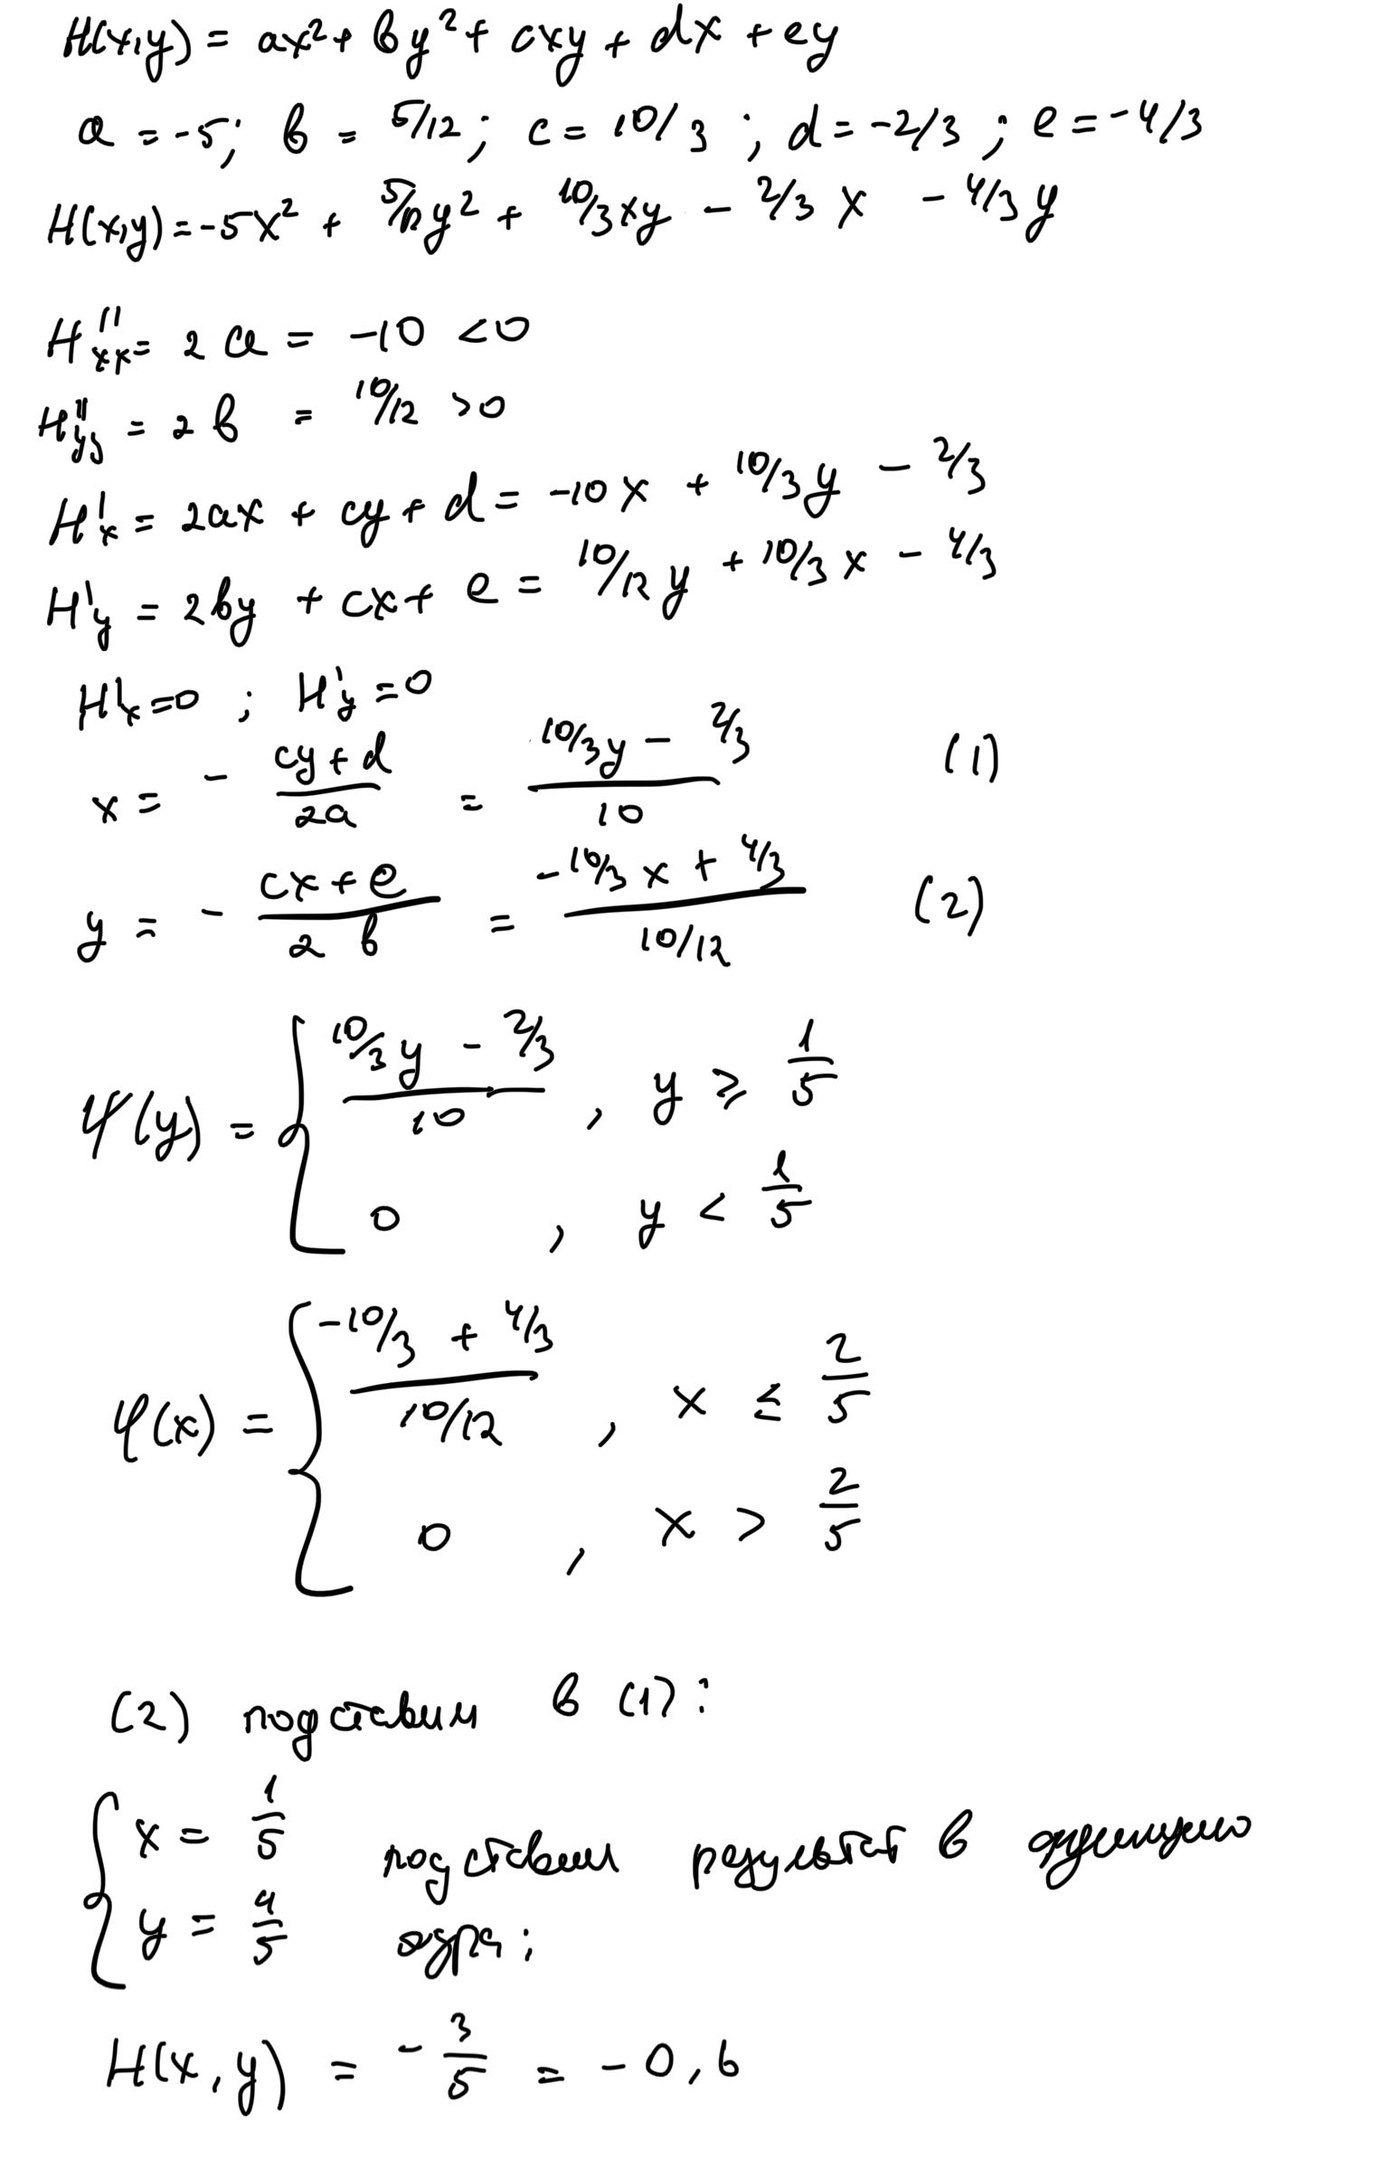 H(x,y) = ax² + by² + cxy + dx + ey
a = -5; b = 5/12; c = 10/3; d = -2/3; e = -4/3
H(x,y) = -5x² + 5/12y² + 10/3xy - 2/3x - 4/3y
H''xx = 2a = -10 <0
H''yy = 2b = 10/12 >0
H'x = 2ax + cy + d = -10x + 10/3y - 2/3
H'y = 2by + cx + e = 10/12y + 10/3x - 4/3
H'x=0; H'y=0
x = - (cy+d)/(2a) = (10/3y - 2/3)/10 (1)
y = - (cx+e)/(2b) = (-10/3x + 4/3)/(10/12) (2)
ψ(y) = { (10/3y - 2/3)/10, y ≥ 1/5
0, y < 1/5
φ(x) = { (-10/3 + 4/3)/(10/12), x ≤ 2/5
0, x > 2/5
(2) подставим в (1):
{ x = 1/5 подставим результат в функцию
y = 4/5 ядра:
H(x,y) = - 3/5 = -0,6